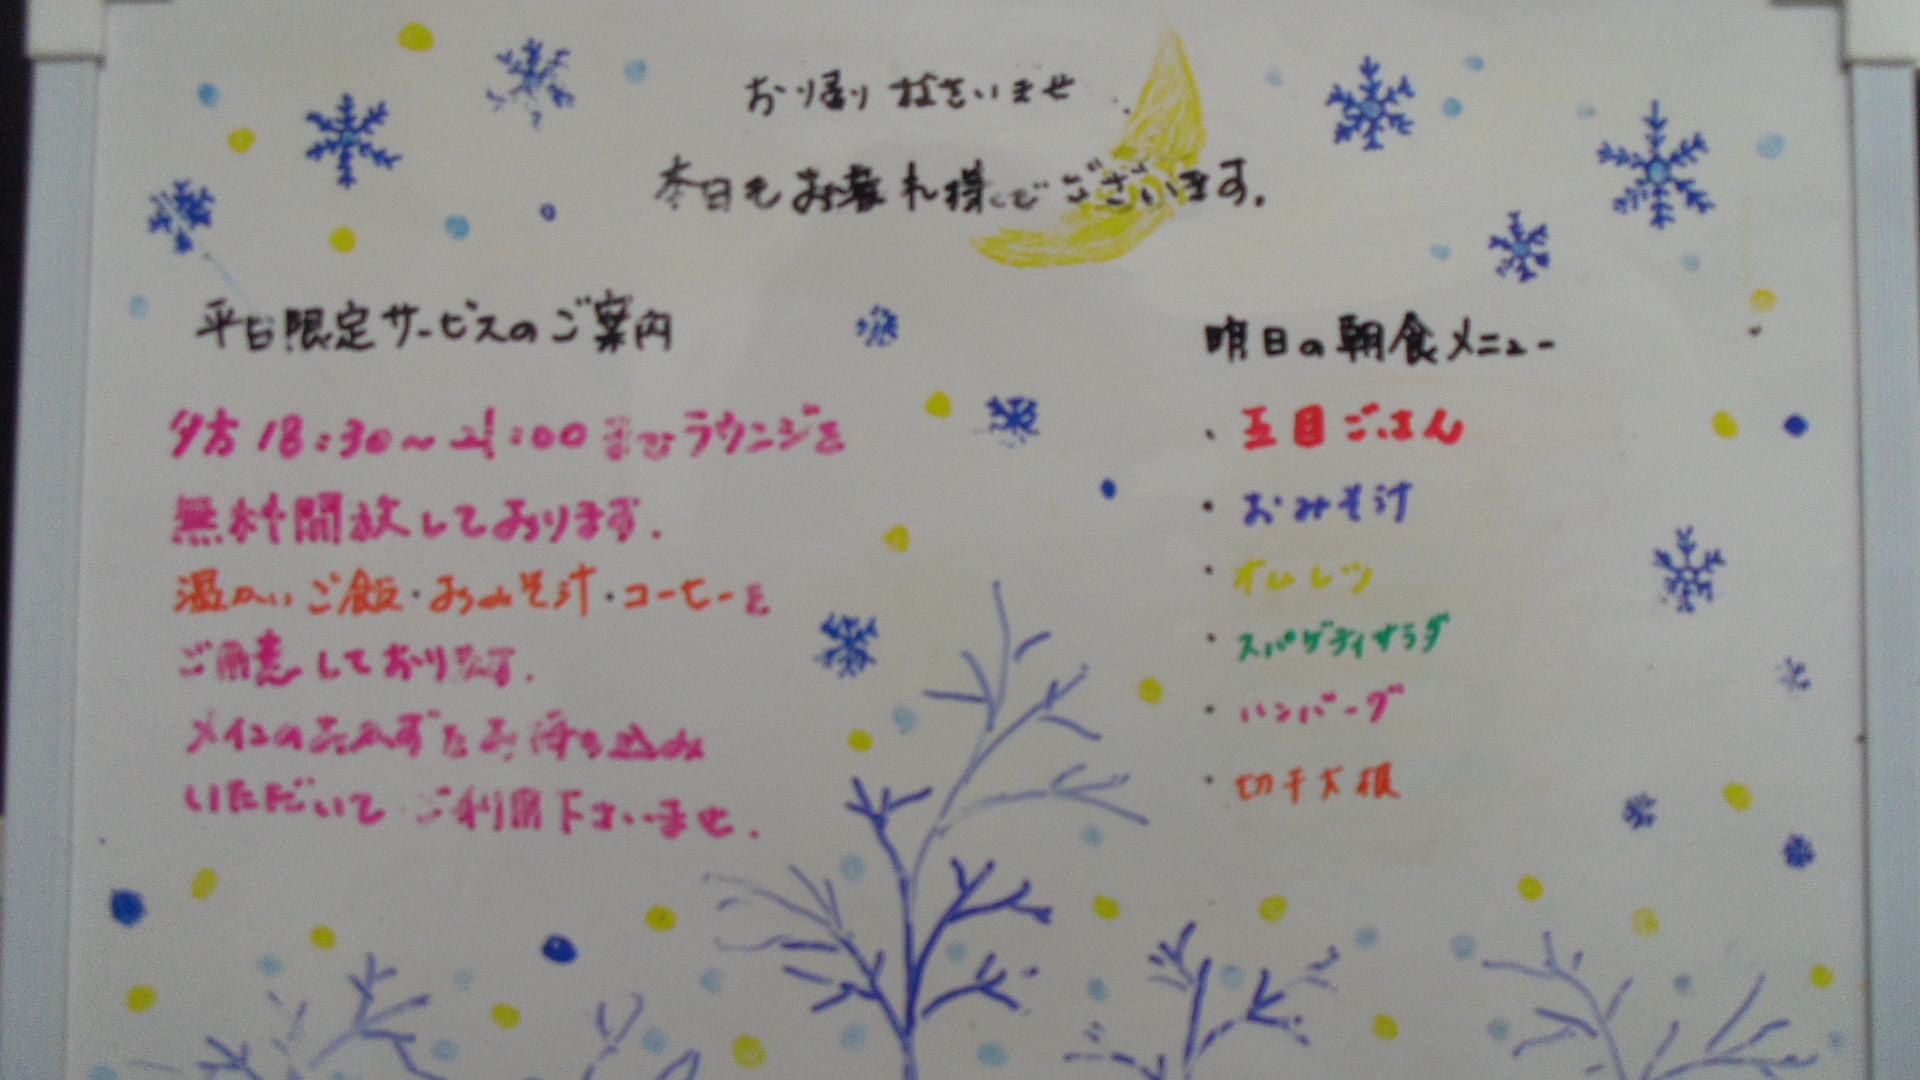 お帰りなさいませ
本日もお疲れ様でございます。
平日限定サービスのご案内
夕方18:30～21:00までラウンジを
無料開放しております。
温かいご飯・おみそ汁・コーヒーを
ご用意しております。
メインのおかずをお持ち込み
いただいてご利用下さいませ。
明日の朝食メニュー
・五目ごはん
・おみそ汁
・オムレツ
・スパゲティサラダ
・ハンバーグ
・切干大根